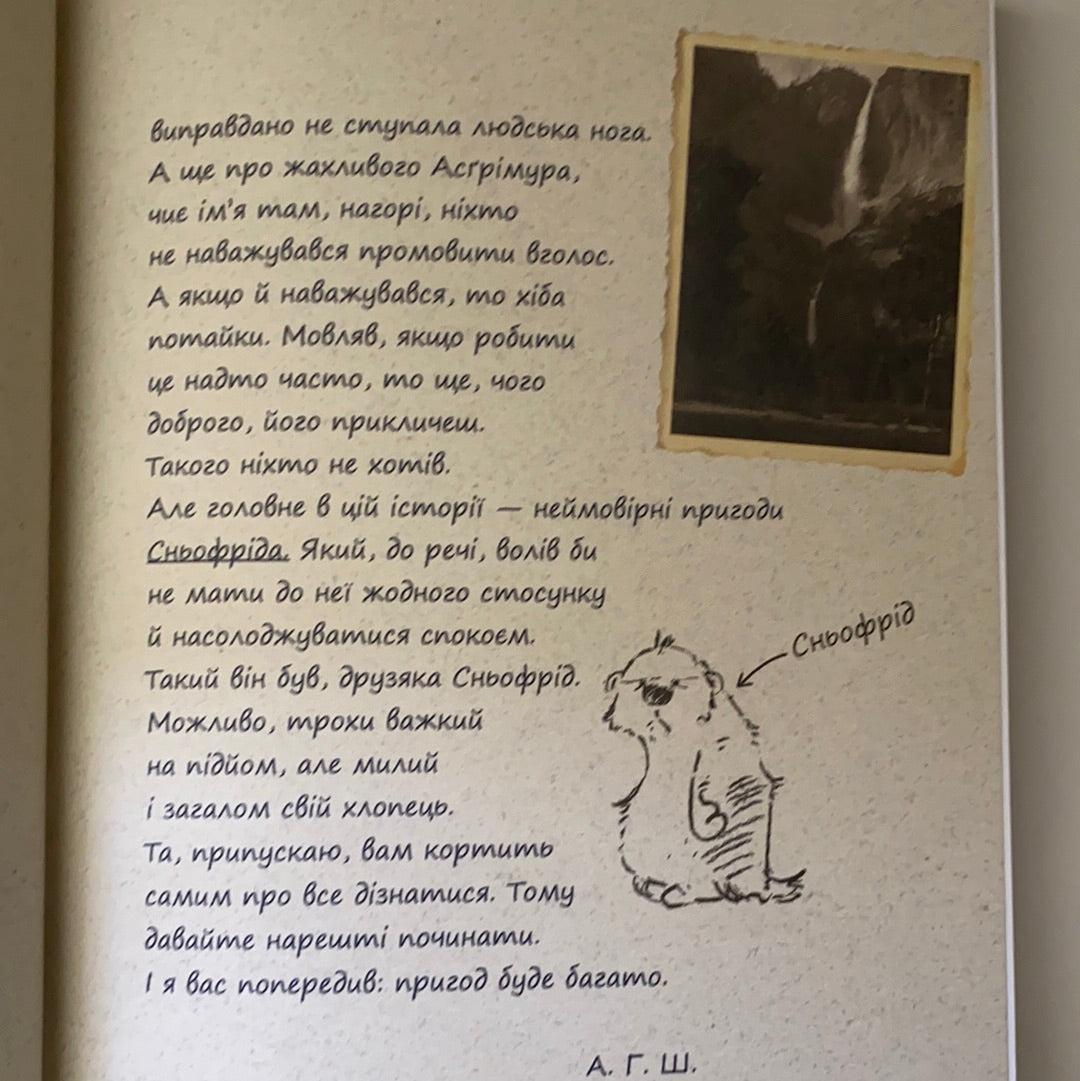 виправдано не ступала людська нога.
А ще про жахливого Асґрімура,
чиє ім'я там, нагорі, ніхто
не наважувався промовити вголос.
А якщо й наважувався, то хіба
потайки. Мовляв, якщо робити
це надто часто, то ще, чого
доброго, його прикличеш.
Такого ніхто не хотів.
Але головне в цій історії — неймовірні пригоди
Сньофріда. Який, до речі, волів би
не мати до неї жодного стосунку
й насолоджуватися спокоєм.
Сньофрід
Такий він був, друзяка Сньофрід.
Можливо, трохи важкий
на підйом, але милий
і загалом свій хлопець.
Та, припускаю, вам кортить
самим про все дізнатися. Тому
давайте нарешті починати.
І я вас попередив: пригод буде багато.
А. Г. Ш.